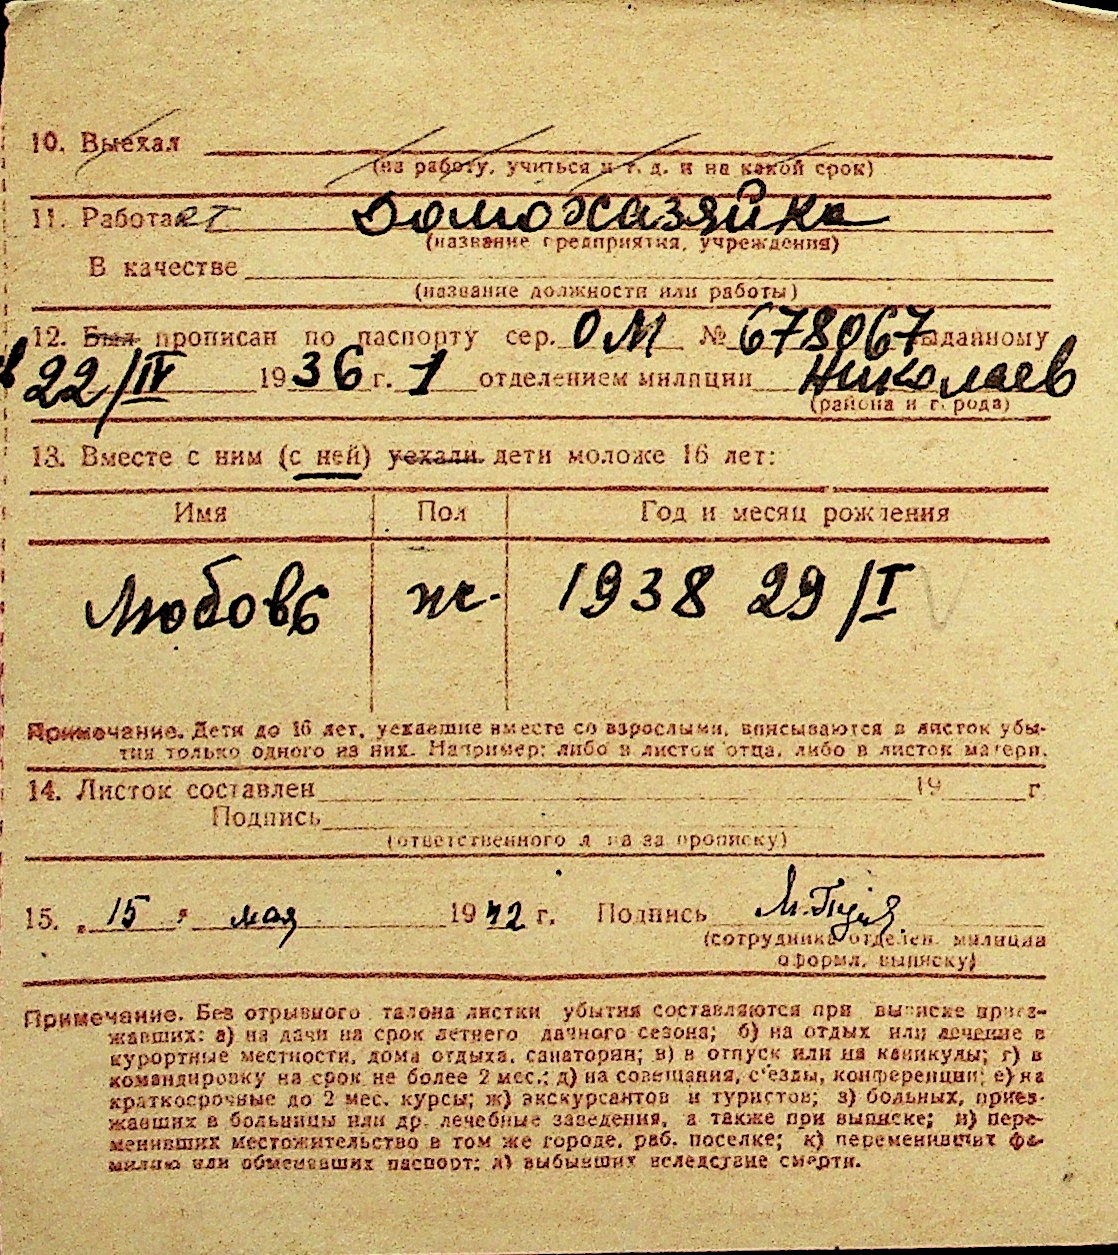 10. Выехал
(на работу, учиться и т. д. и на какой срок)
11. Работает домохазяйка
(название предприятия, учреждения)
В качестве
(название должности или работы)
12. Был прописан по паспорту сер. ОМ № 678067 выданному
в 22/IV 1936 г. 1 отделением милиции Николаев
(района и города)
13. Вместе с ним (с ней) уехали дети моложе 16 лет:
Имя Пол Год и месяц рождения
Любовь ж. 1938 29/I
Примечание. Дети до 16 лет, уехавшие вместе со взрослыми, вписываются в листок убы-
тия только одного из них. Например: либо в листок отца, либо в листок матери.
14. Листок составлен 19 г
Подпись
(ответственного л на за прописку)
15. „ 15 " мая 1942 г. Подпись
(сотрудника отделен. милиции
оформл. выписку)
Примечание. Без отрывного талона листки убытия составляются при выписке приез-
жавших: а) на дачи на срок летнего дачного сезона; б) на отдых или лечение в
курортные местности, дома отдыха, санатории; в) в отпуск или на каникулы; г) в
командировку на срок не более 2 мес.; д) на совещания, с'езды, конференции; е) на
краткосрочные до 2 мес. курсы; ж) экскурсантов и туристов; з) больных, приез-
жавших в больницы или др. лечебные заведения, а также при выписке; и) пере-
менивших местожительство в том же городе, раб. поселке; к) переменивших фа-
милию или обменявших паспорт; л) выбывших вследствие смерти.